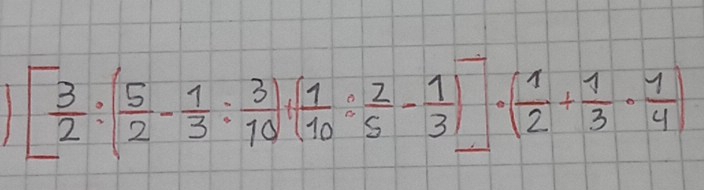 ) [3/2 : (5/2 - 1/3 : 3/10) + (1/10 : 2/5 - 1/3)] · (1/2 + 1/3 · 1/4)